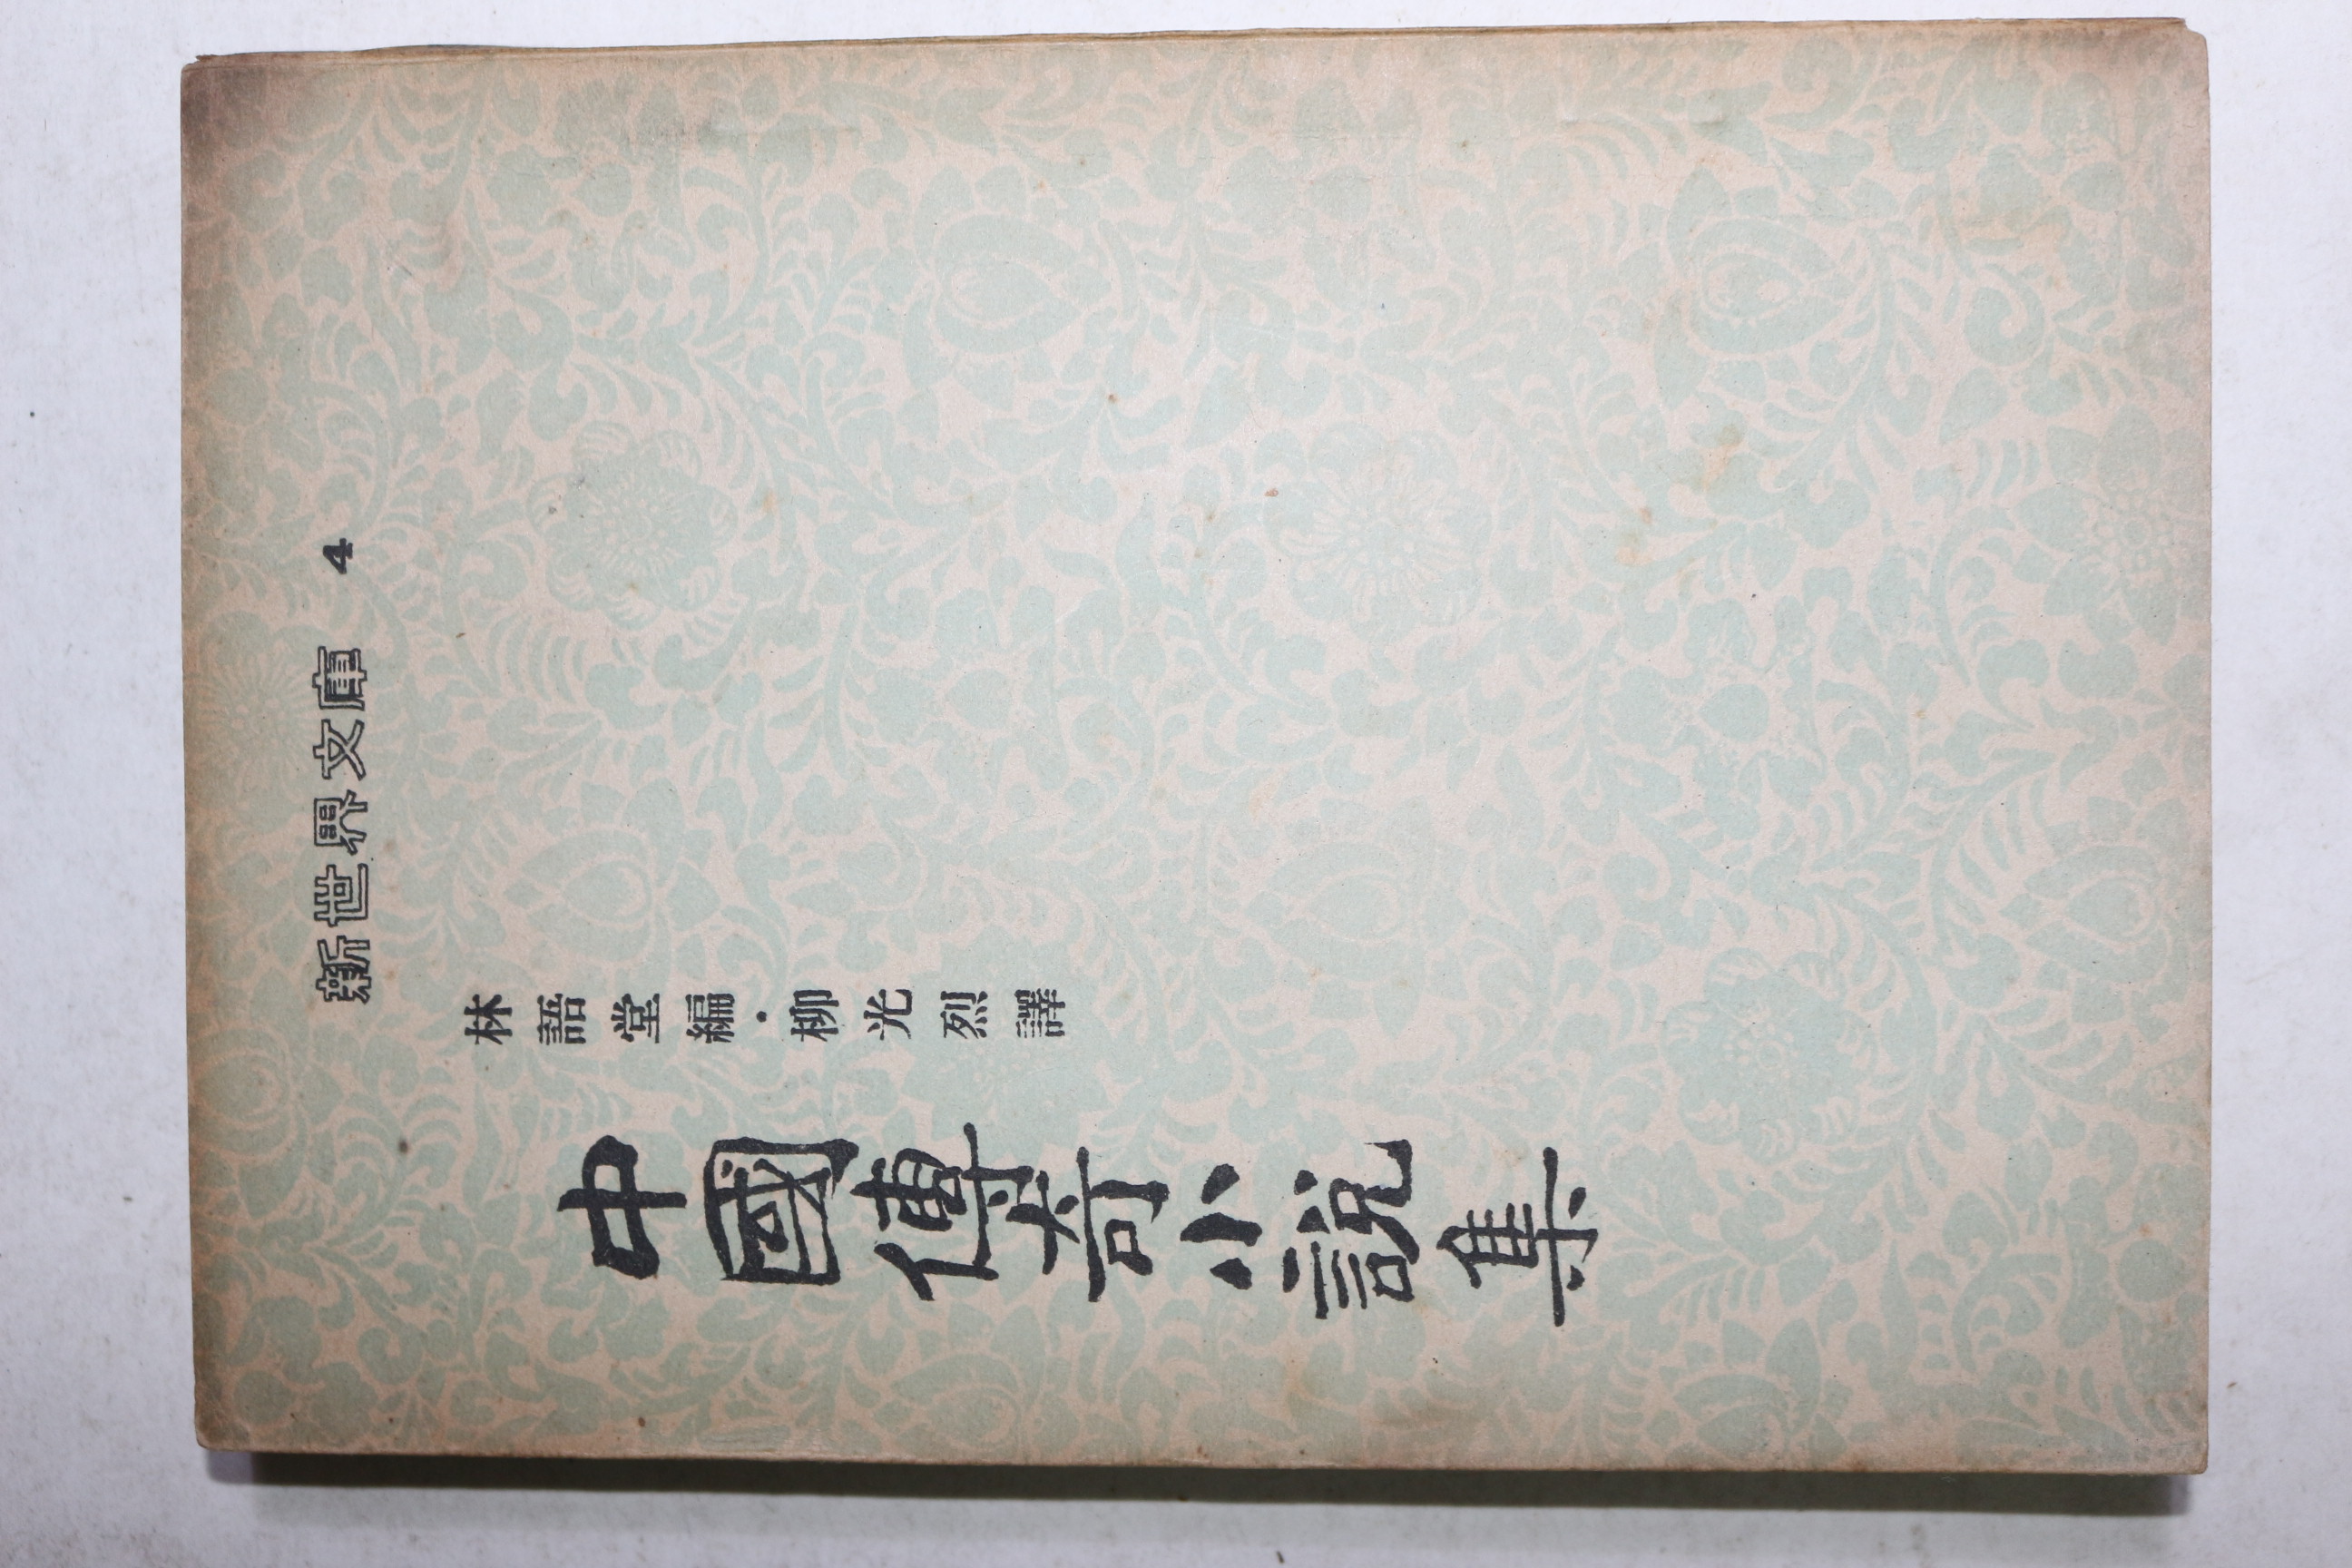 新世界文庫 4
林語堂編·柳光烈譯
中國傳奇小說集